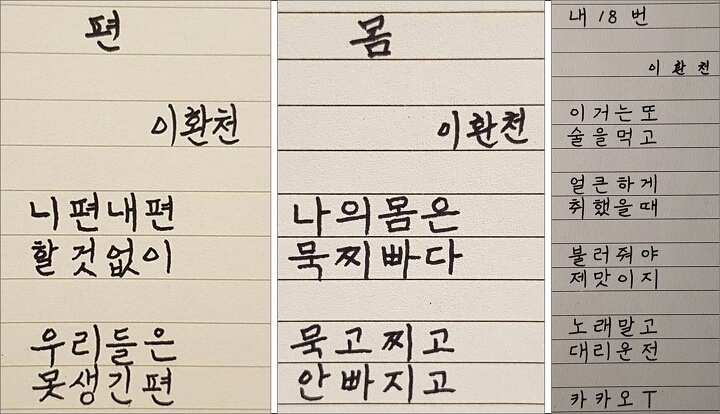 편
이환천
니편내편
할것없이
우리들은
못생긴편
몸
이환천
나의몸은
묵찌빠다
묵고찌고
안빠지고
내 18 번
이환천
이거는또
술을먹고
얼큰하게
취했을때
불러줘야
제맛이지
노래말고
대리운전
카카오T